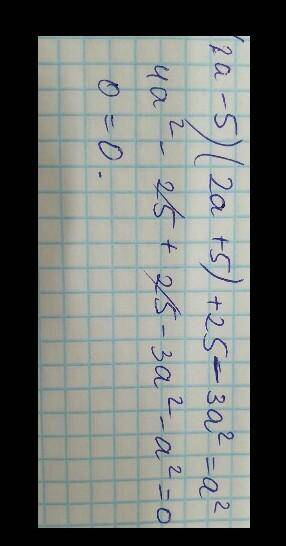 (2a - 5)(2a + 5) + 25 - 3a² = a²
4a² - 25 + 25 - 3a² - a² = 0
0 = 0.